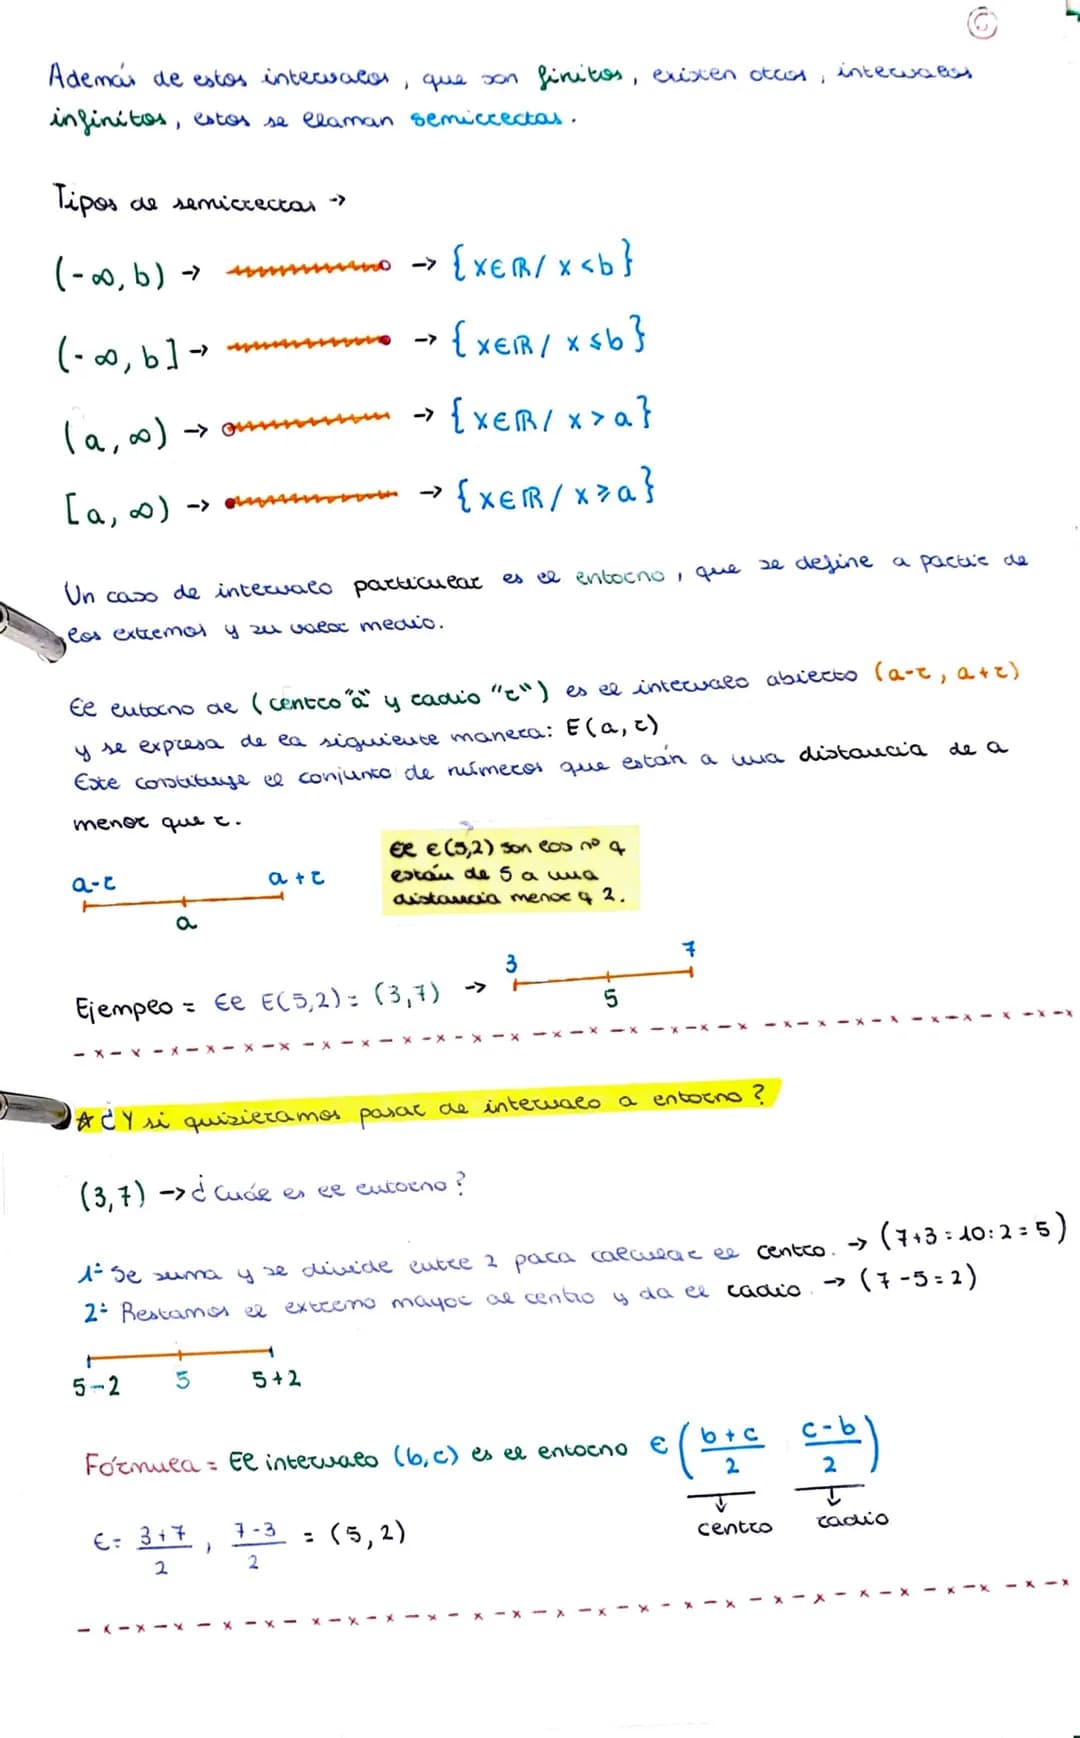 6
Además de estos intervalos, que son finitos, existen otros, intervalos
infinitos, estos se llaman semirrectas.
Tipos de semirrectas →
(-∞, b) → → {x∈ℝ/ x<b}
(-∞, b] → → {x∈ℝ/ x≤b}
(a, ∞) → → {x∈ℝ/ x>a}
[a, ∞) → → {x∈ℝ/ x≥a}
Un caso de intervalo particular es el entorno, que se define a partir de
los extremos y su valor medio.
El entorno de (centro "a" y radio "r") es el intervalo abierto (a-r, a+r)
y se expresa de la siguiente manera: E(a, r)
Este constituye el conjunto de números que están a una distancia de a
menor que r.
El E(5,2) son los nº q
están de 5 a una
distancia menor q 2.
a-r a+r
a
3 7
5
Ejemplo = El E(5,2) = (3,7) →
☆ ¿Y si quisieramos pasar de intervalo a entorno?
(3,7) → ¿Cuál es el entorno?
1º Se suma y se divide entre 2 para calcular el centro. → (7+3=10:2=5)
2º Restamos el extremo mayor al centro y da el radio. → (7-5=2)
5-2 5 5+2
Fórmula = El intervalo (b,c) es el entorno E (b+c/2 c-b/2)
centro radio
E= 3+7/2, 7-3/2 = (5, 2)